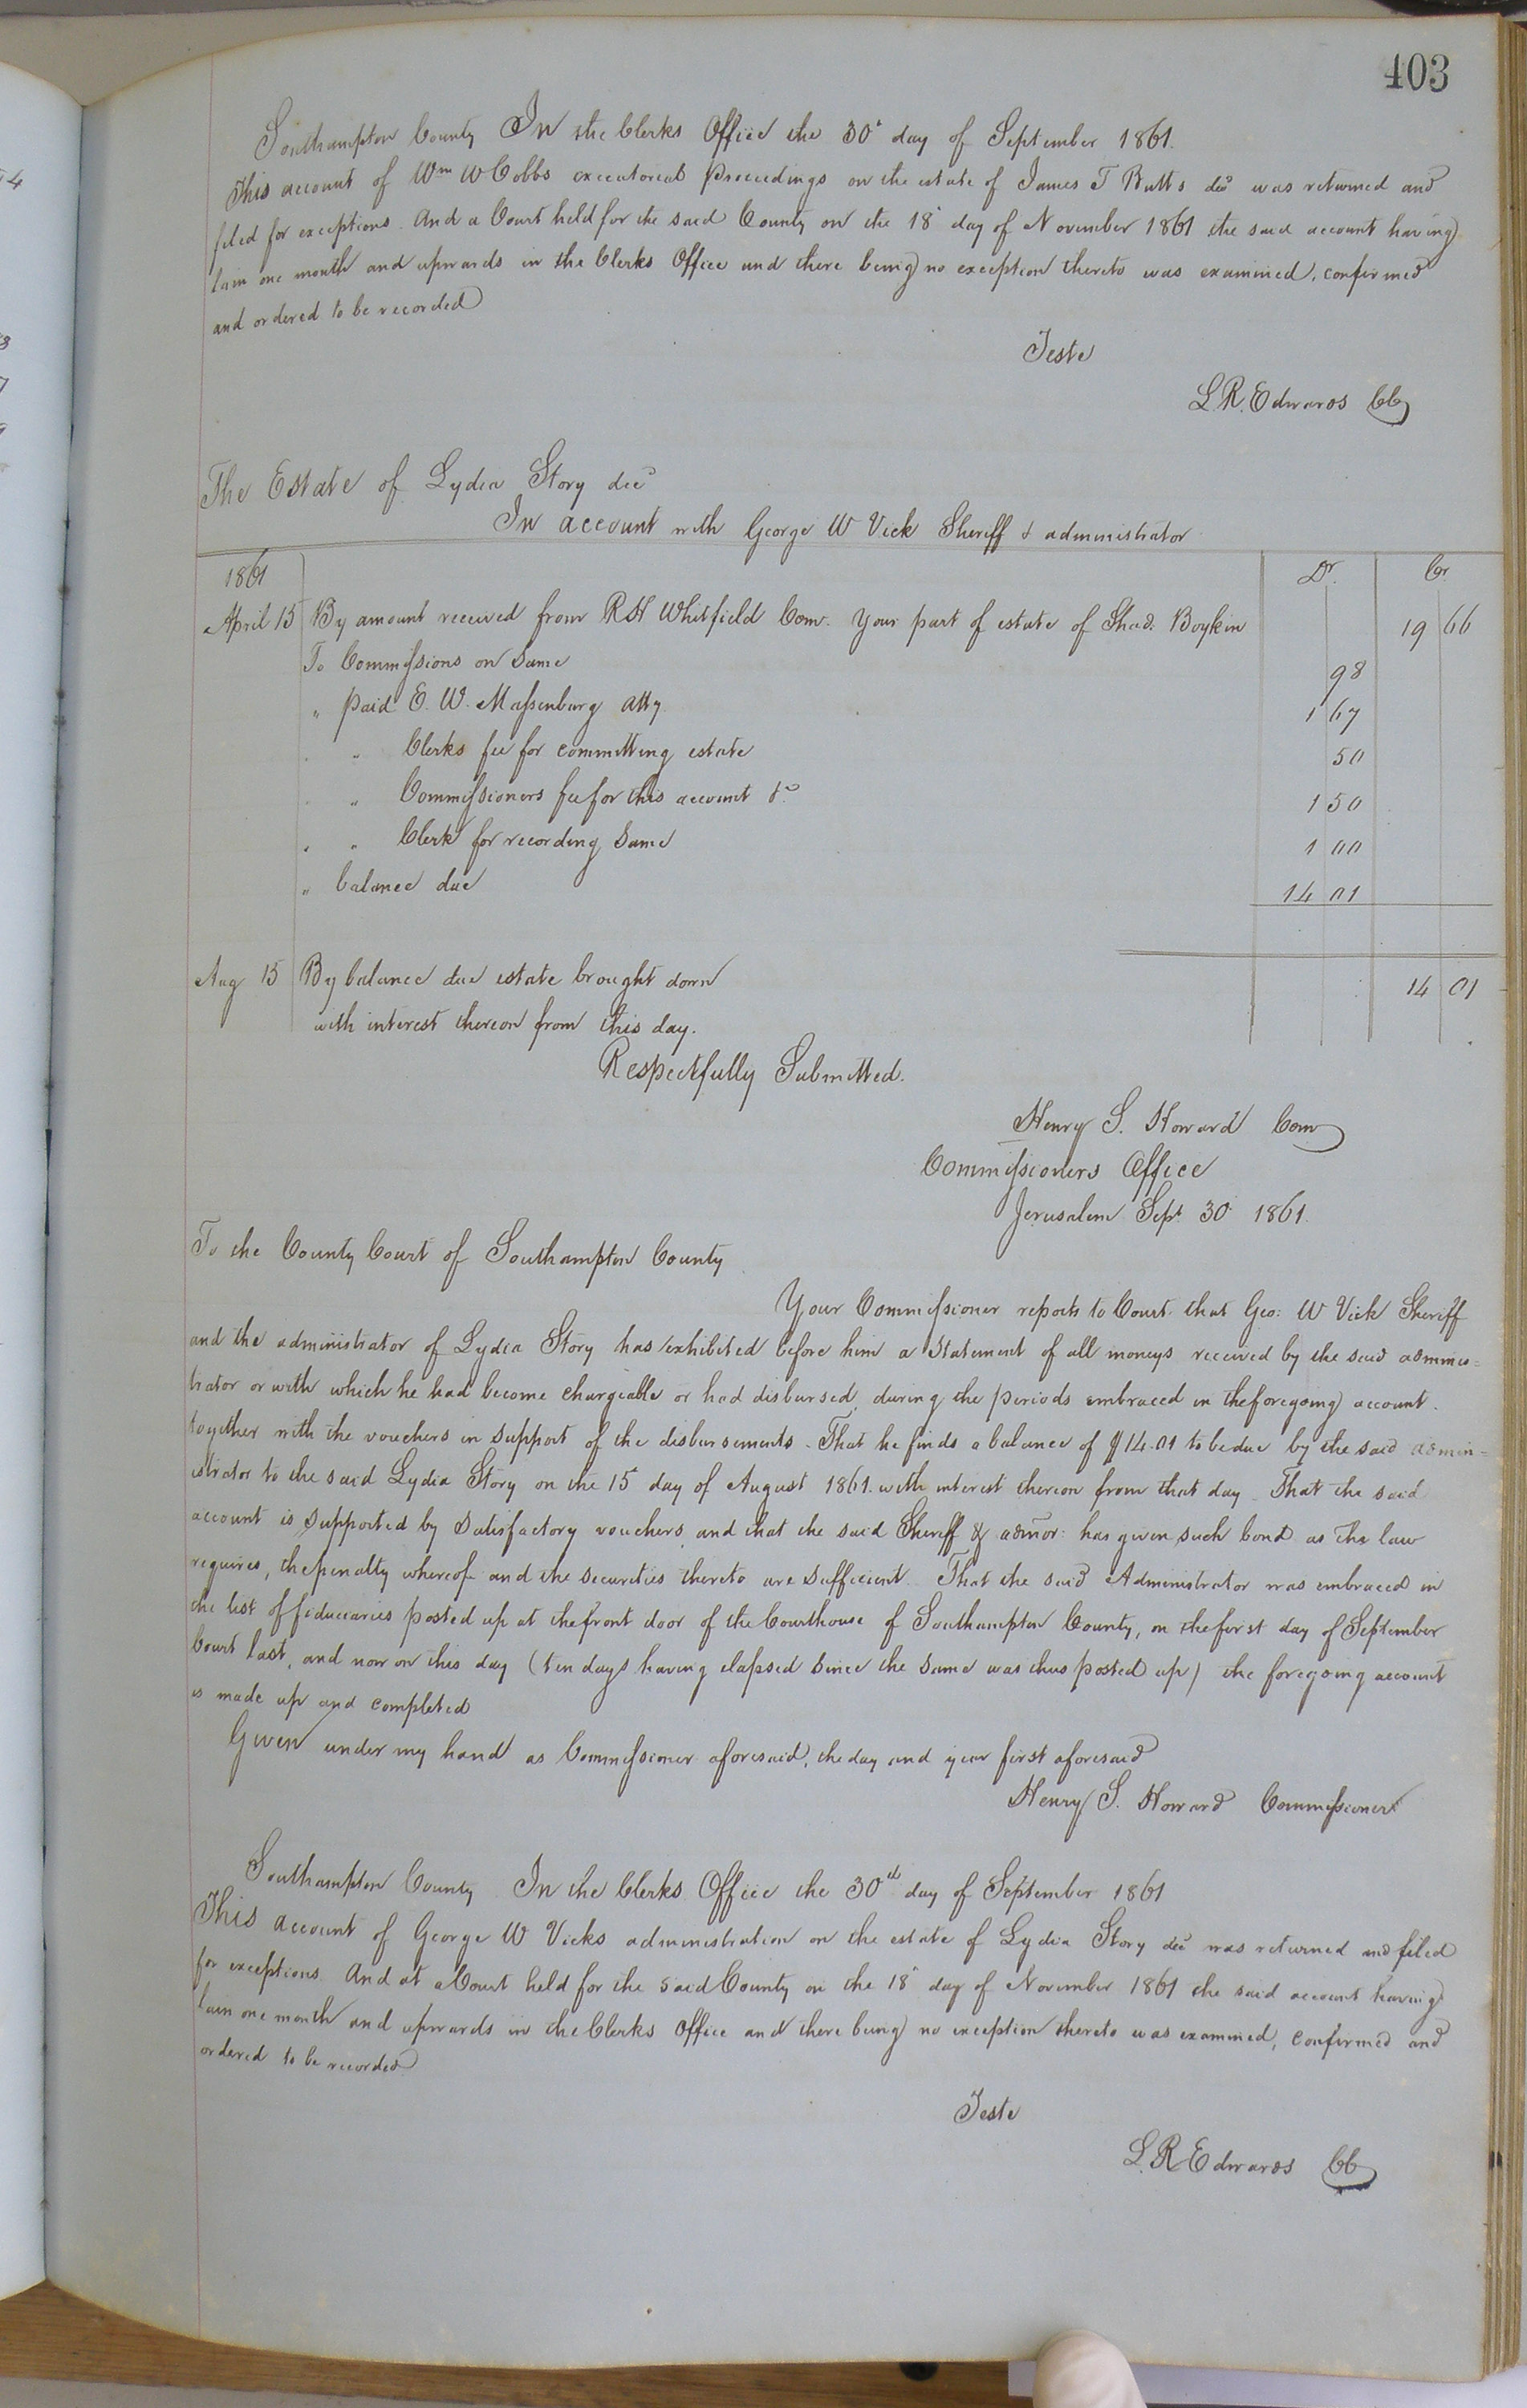 403
Southampton County In the Clerks Office the 30th day of September 1861.
This account of Wm W Cobbs executorial proceedings on the estate of James T Butts decd was returned and
filed for exceptions. And a Court held for the said County on the 18th day of November 1861 the said account having
lain one month and upwards in the Clerks Office and there being no exception thereto was examined, confirmed
and ordered to be recorded
Teste
L. R. Edwards CC
The Estate of Lydia Story decd
In account with George W Vick Sheriff & administrator
1861 Dr. Cr.
April 15 By amount received from R H Whitfield Com. Your part of estate of Shad. Boykin 19 66
To Commissions on Same 98
" paid E. W. Massenburg atty 1 67
" " Clerks fee for committing estate 50
" " Commissioners fee for this account &c 1 50
" " Clerk for recording Same 1 00
" balance due 14 01
Aug 15 By balance due estate brought down 14 01
with interest thereon from this day.
Respectfully Submitted.
Henry S. Howard Com
Commissioners Office
Jerusalem Sept 30 1861.
To the County Court of Southampton County
Your Commissioner reports to Court that Geo: W Vick Sheriff
and the administrator of Lydia Story has exhibited before him a Statement of all moneys received by the said adminis=
trator or with which he had become chargeable or had disbursed, during the periods embraced in the foregoing account.
together with the vouchers in support of the disbursements. That he finds a balance of $14.01 to be due by the said admin=
istrator to the said Lydia Story on the 15 day of August 1861. with interest thereon from that day. That the said
account is supported by Satisfactory vouchers and that the said Sheriff & admor: has given such bond as the law
requires, the penalty whereof and the securities thereto are sufficient. That the said Administrator was embraced in
the list of fiduciaries posted up at the front door of the Courthouse of Southampton County, on the first day of September
Court last, and now on this day (ten days having elapsed since the same was thus posted up) the foregoing account
is made up and completed
Given under my hand as Commissioner aforesaid, the day and year first aforesaid
Henry S. Howard Commissioner
Southampton County In the Clerks Office the 30th day of September 1861
This account of George W Vicks administration on the estate of Lydia Story decd was returned and filed
for exceptions. And at a Court held for the said County on the 18th day of November 1861 the said account having
lain one month and upwards in the Clerks Office and there being no exception thereto was examined, confirmed and
ordered to be recorded
Teste
L. R Edwards CC